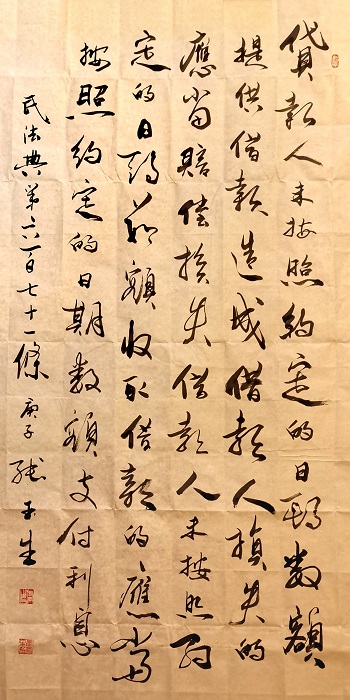 貸款人未按照約定的日期數額
提供借款造成借款人損失的
應當賠償損失借款人未按照約
定的日期數額收取借款的應當
按照約定的日期數額支付利息
民法典第六百七十一條 庚子 張玉生